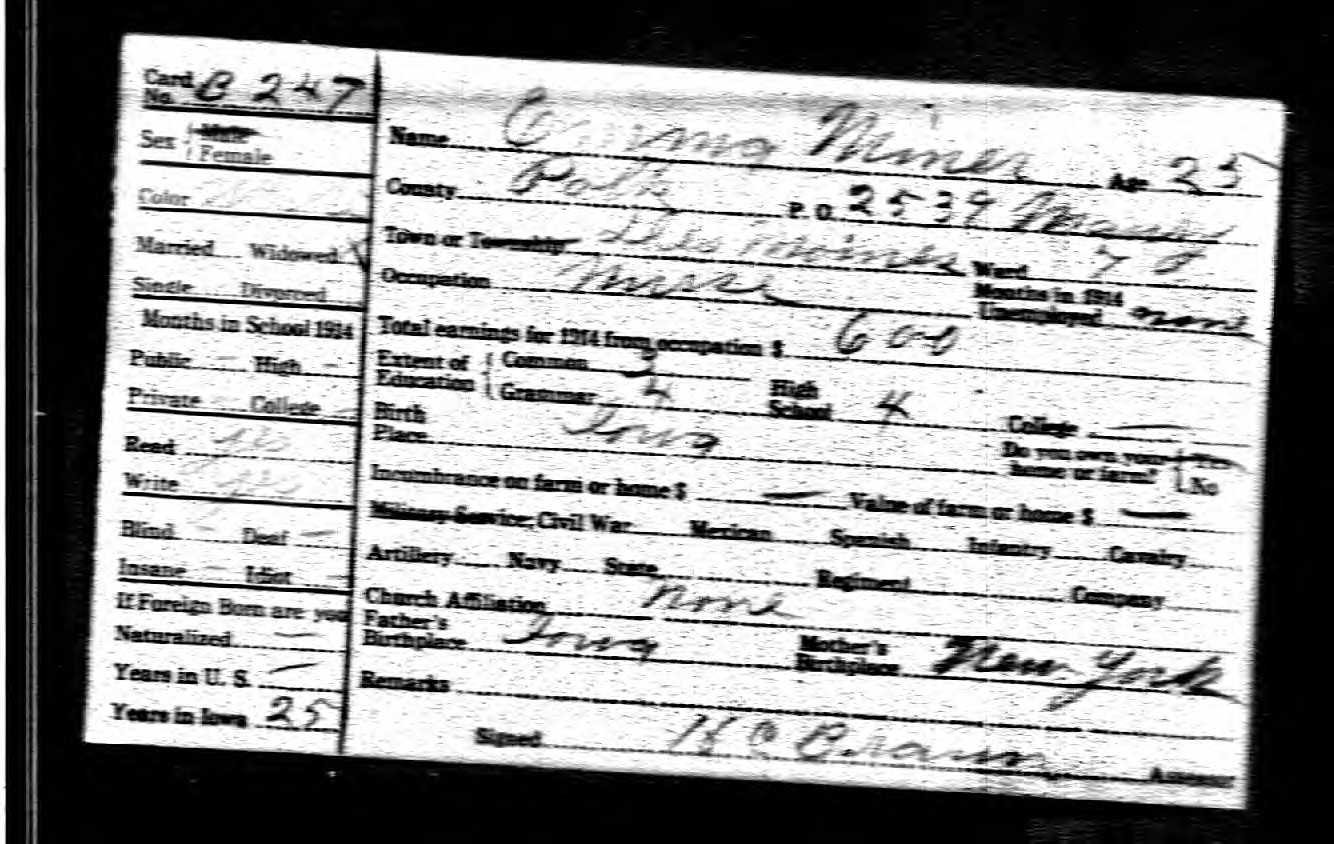 Card No. B 247
Sex { Male
Female
Color
Married Widowed X
Single Divorced
Months in School 1914
Public — High —
Private College —
Read yes
Write yes
Blind — Deaf —
Insane — Idiot —
If Foreign Born are you
Naturalized —
Years in U. S. —
Years in Iowa 25
Name Emma Miner Age 25
County Polk P. O. 2539 Maury
Town or Township Des Moines Ward 7
Occupation Nurse Months in 1914 Unemployed none
Total earnings for 1914 from occupation $ 600
Extent of Education { Common 3
Grammar 4 High School 4 College —
Birth Place Iowa Do you own your home or farm? { Yes
No
Incumbrance on farm or home $ — Value of farm or home $ —
Military Service: Civil War Mexican Spanish Infantry Cavalry
Artillery Navy State Regiment Company
Church Affiliation none
Father's Birthplace Iowa Mother's Birthplace New York
Remarks
Signed H C Assessor